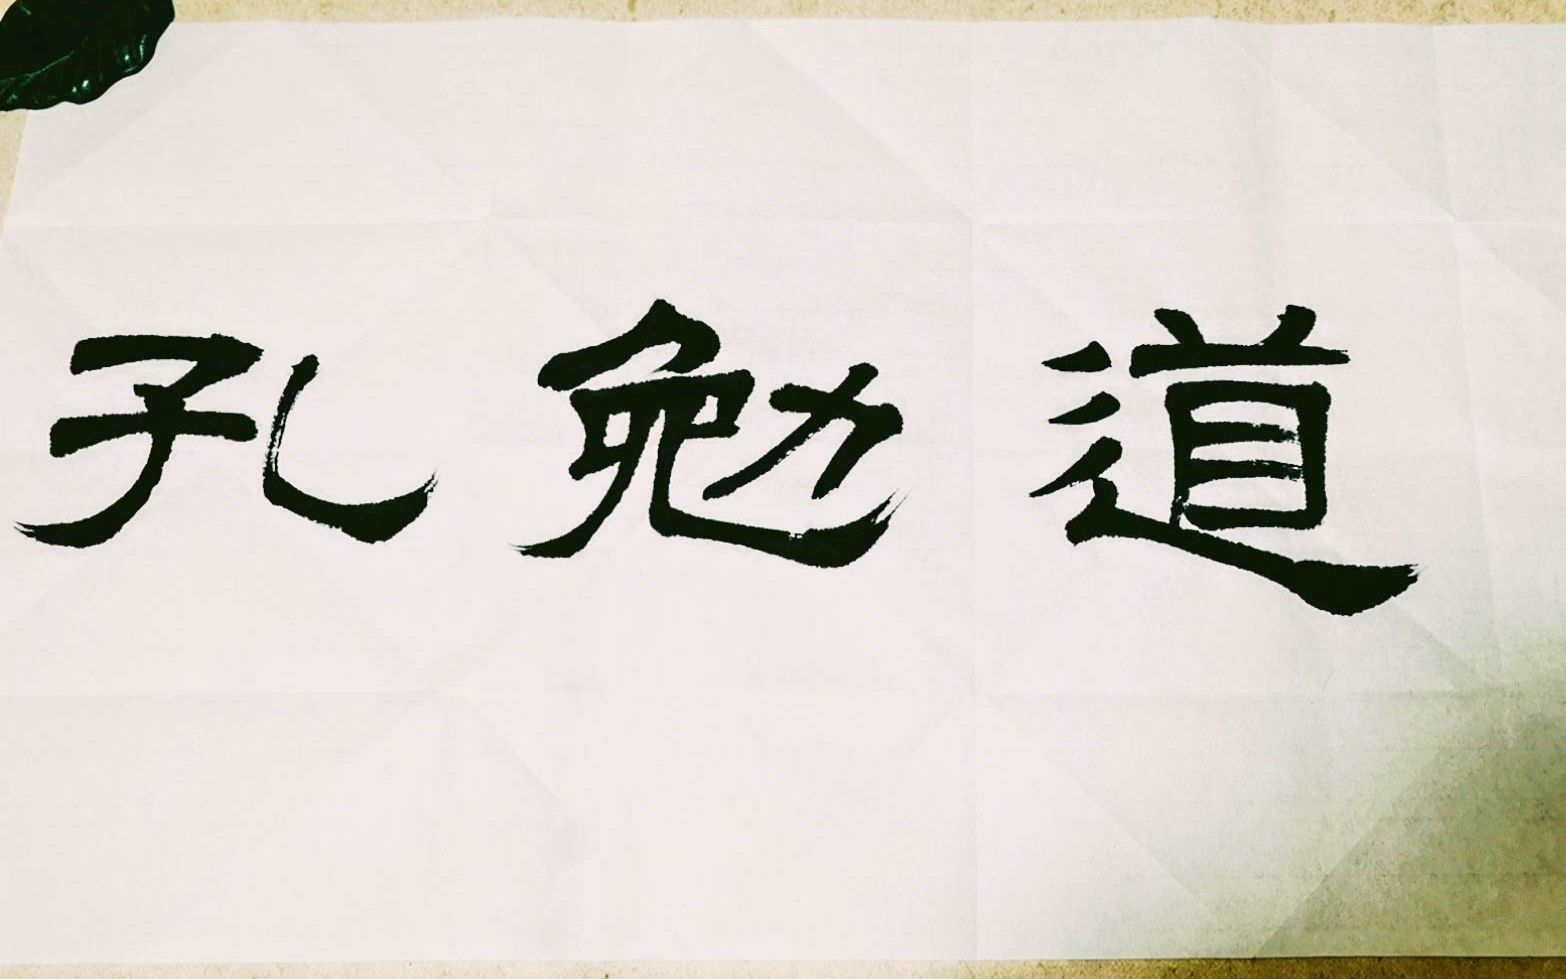 孔勉道